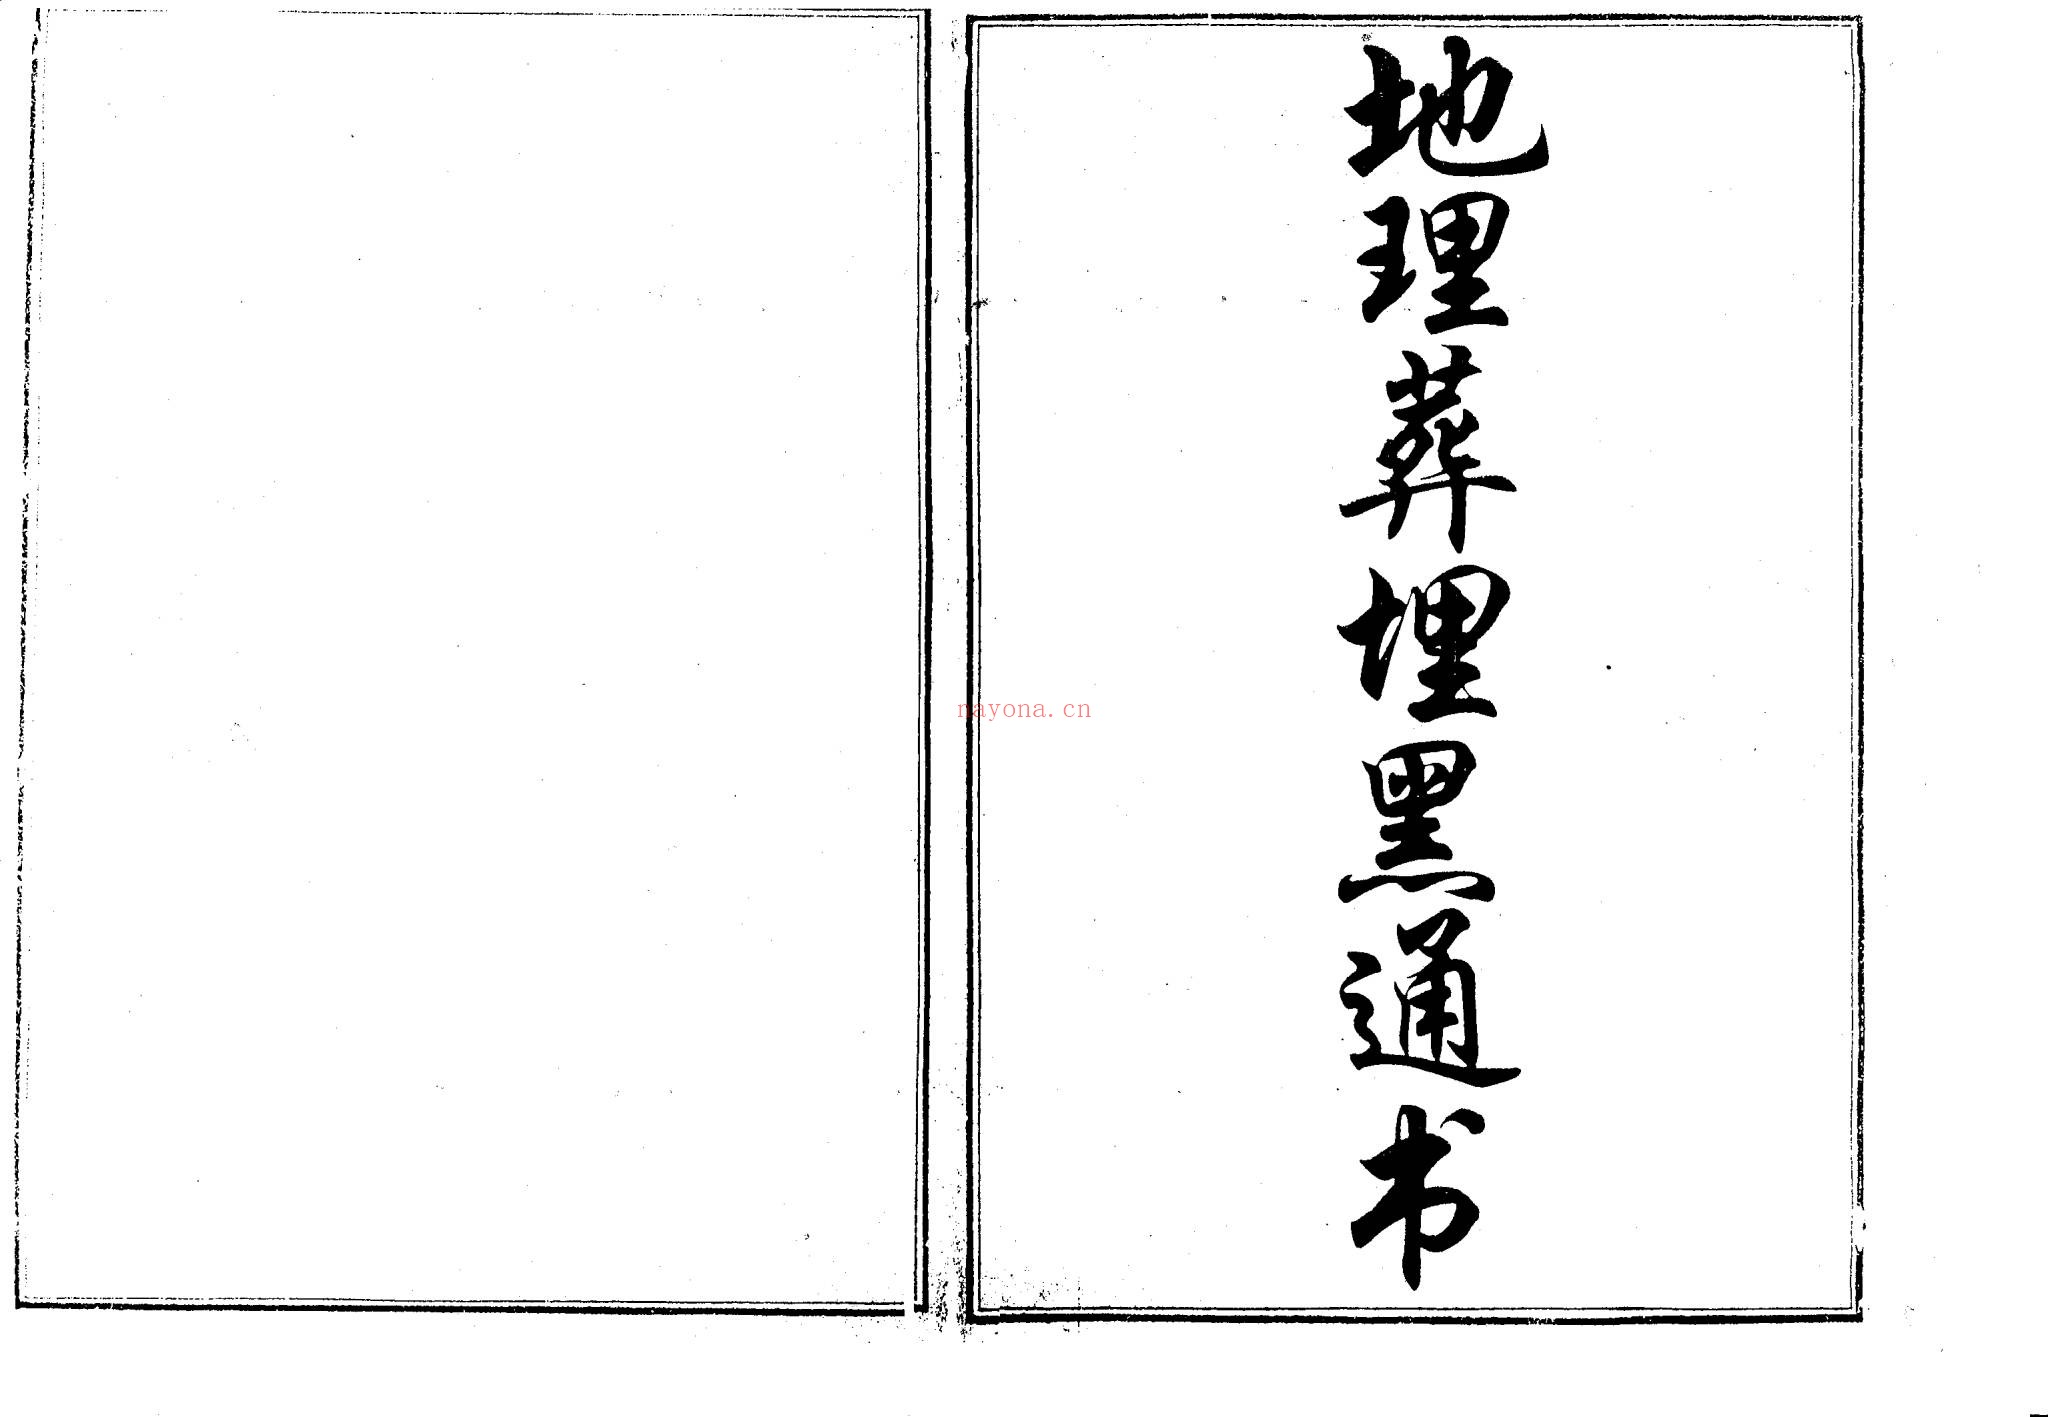 地理葬埋黑通书
nayona.cn